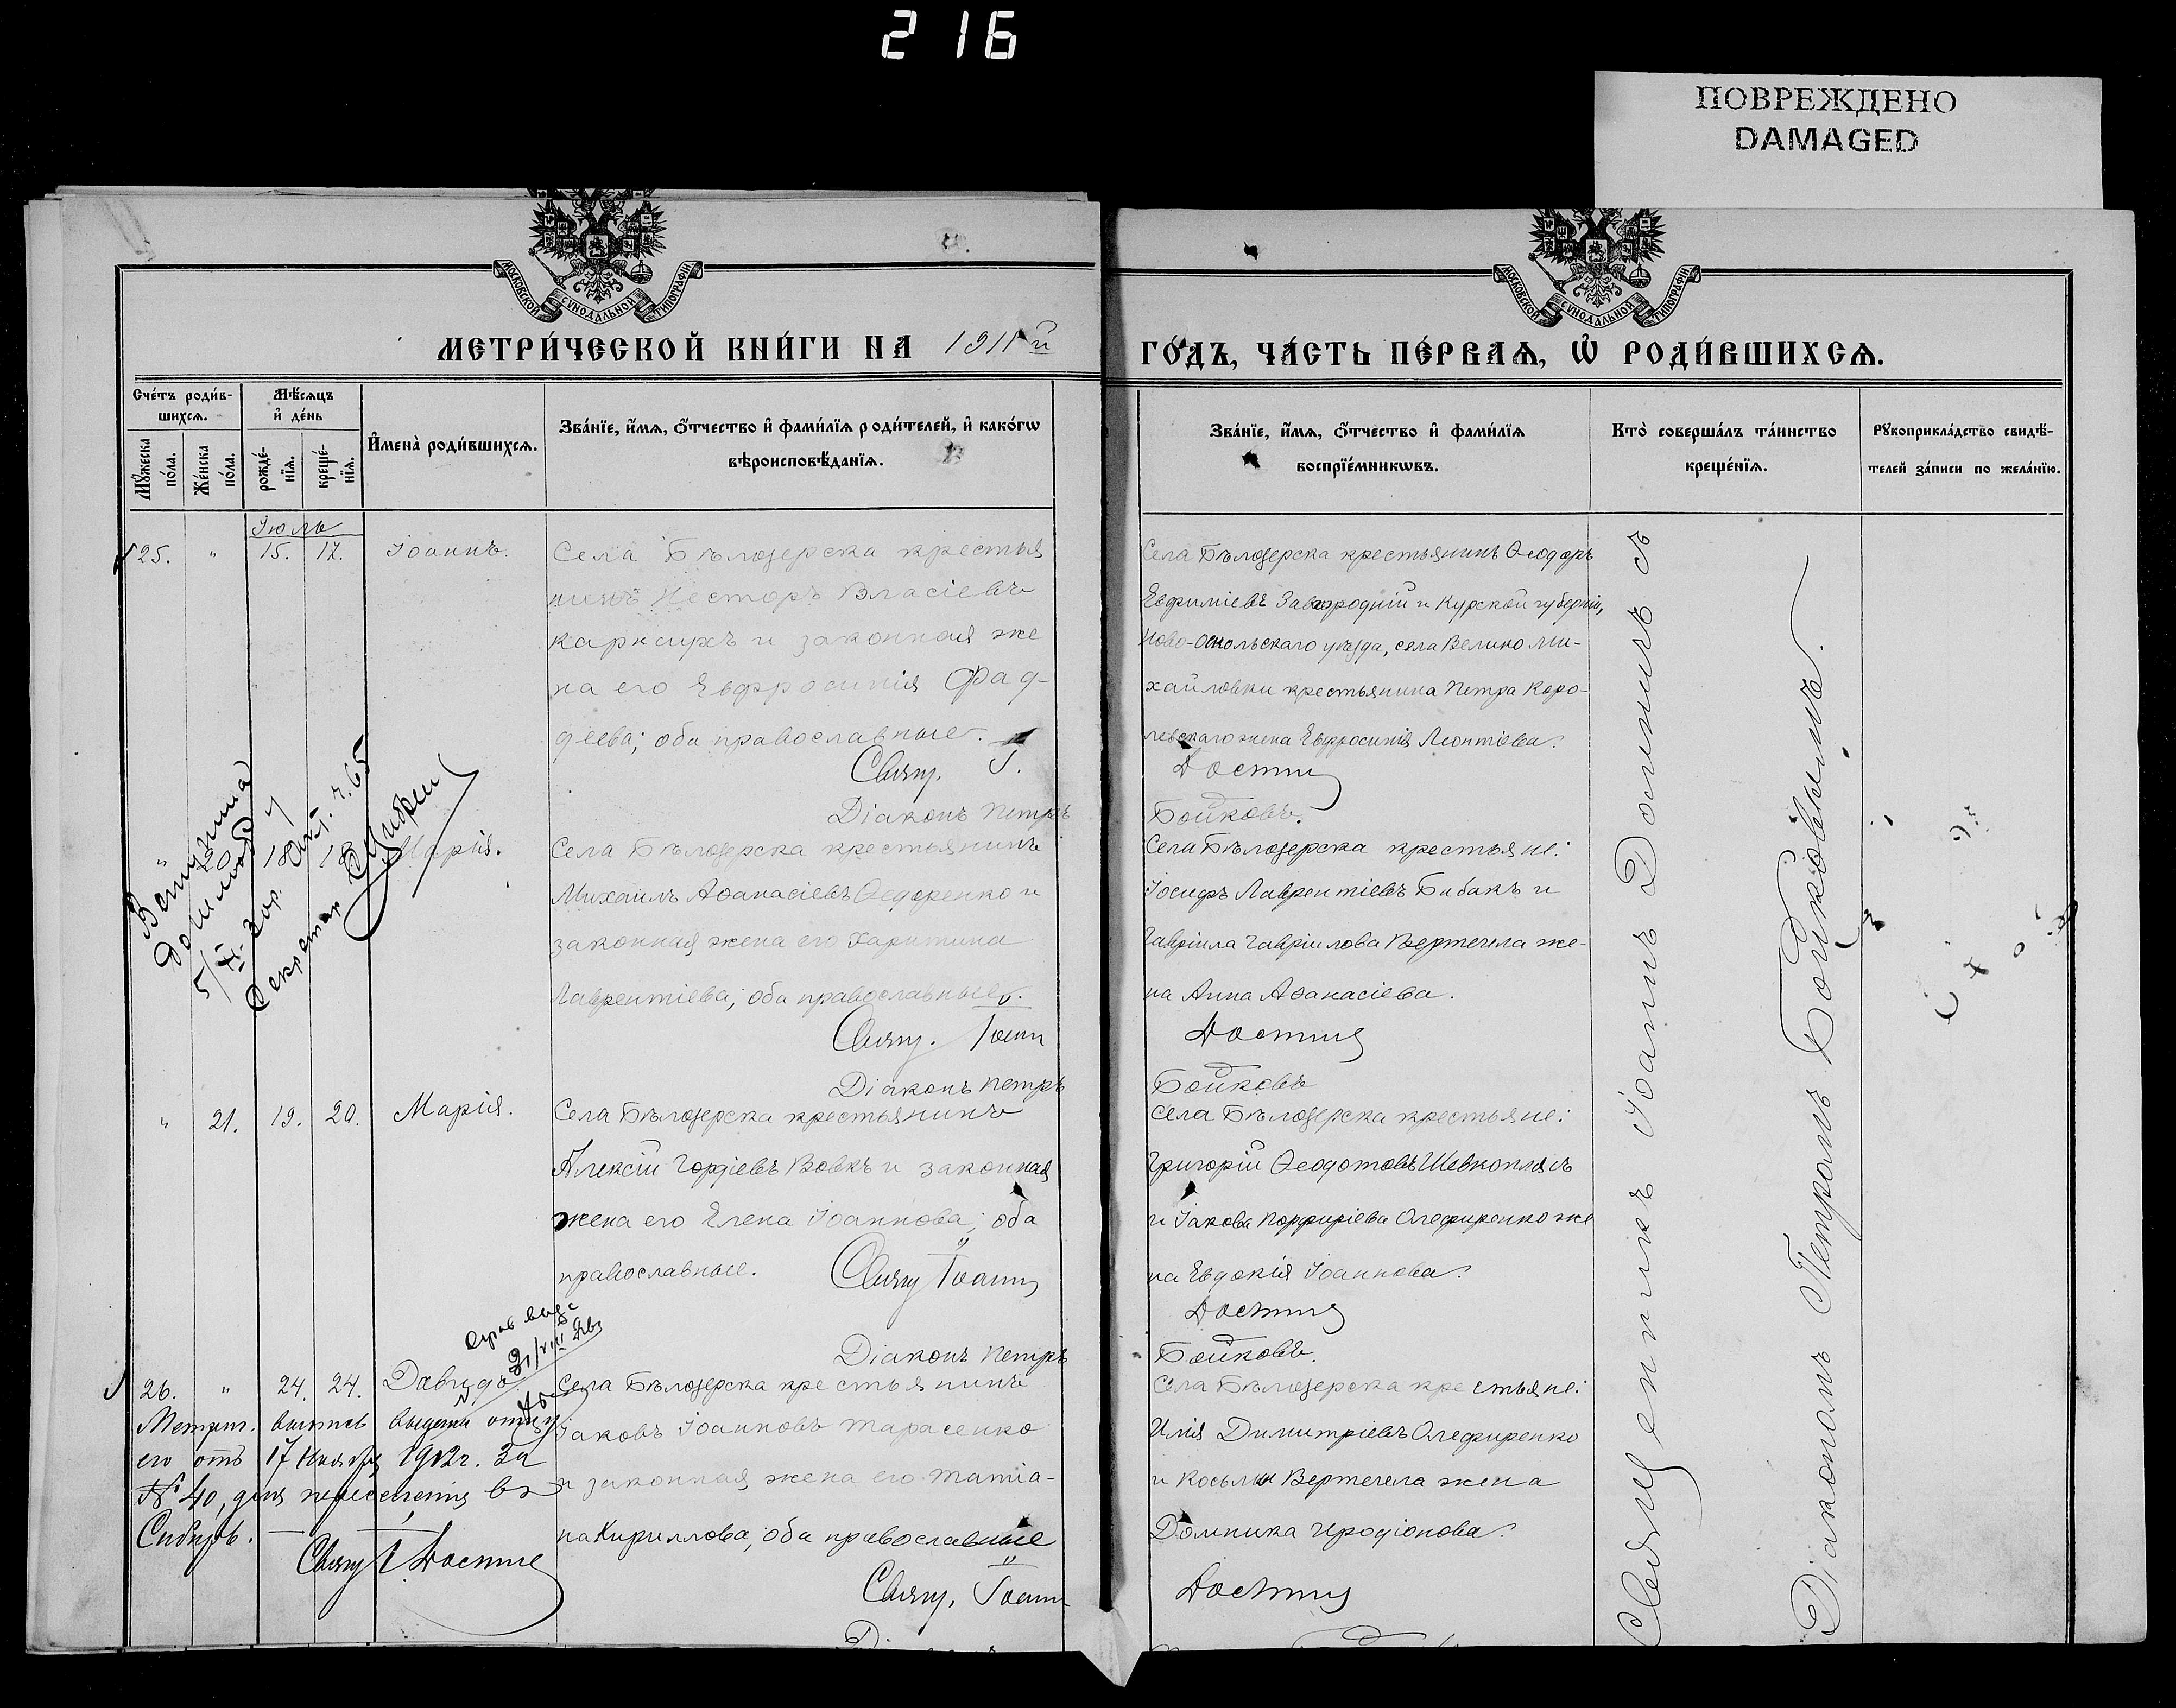 216
ПОВРЕЖДЕНО
DAMAGED
МОСКОВСКОЙ СѴНОДАЛЬНОЙ ТИПОГРАФІИ
МОСКОВСКОЙ СѴНОДАЛЬНОЙ ТИПОГРАФІИ
МЕТРИ́ЧЕСКОЙ КНИ́ГИ НА 1911 й
ГО́ДЪ, ЧА́СТЬ ПЕ́РВАѦ, Ѡ҆ РОДИ́ВШИХСѦ.
Сче́тъ роди́в-
шихсѧ.
Мꙋ́жеска по́ла.
Же́нска по́ла.
Мѣ́сѧцъ
и҆ де́нь
рожде́-
нїѧ.
креще́-
нїѧ.
И҆мена̀ роди́вшихсѧ.
Зва́нїе, и҆́мѧ, ѻ҆́тчество и҆ фами́лїѧ роди́телей, и҆ како́гѡ
вѣроисповѣ́данїѧ.
Зва́нїе, и҆́мѧ, ѻ҆́тчество и҆ фами́лїѧ
воспрїе́мникѡвъ.
Кто̀ соверша́лъ та́инство
креще́нїѧ.
Рꙋкоприкла́дство свидѣ́-
телей за́писи по жела́нїю.
Іюль
25. " 15. 17. Іоаннъ.
Села Бѣлозерска крестья
нинъ Несторъ Власіевъ
и законная же
на его Евфросинія Фад-
деева; оба православные.
Свящ. І.
Діаконъ Петръ
Села Бѣлозерска крестьянинъ Ѳеодоръ
Евфиміевъ Завгородній и Курской губерніи,
Ново-Оскольскаго уѣзда, села Велико Ми-
хайловки крестьянина Петра Коро-
левскаго жена Евфросинія Леонтіева.
Бойковъ.
" 18 Марія.
Села Бѣлозерска крестьянинъ
Михаилъ Аѳанасіевъ Ѳедоренко и
законная жена его Харитина
Лаврентіева; оба православные.
Свящ. Іоанн
Діаконъ Петръ
Села Бѣлозерска крестьяне:
Іосифъ Лаврентіевъ Бибакъ и
Гавріила Гавріилова Вертегела же-
на Анна Аѳанасіева.
Бойковъ
Секретар
" 21. 19. 20. Марія.
Села Бѣлозерска крестьянинъ
Алексій Гордіевъ Вовкъ и законная
жена его Елена Іоаннова; оба
православные. Свящ Іоанн
Діаконъ Петръ
Села Бѣлозерска крестьяне:
Григорій Ѳеодотовъ Шевкоплясъ
и Іакова Порфиріева Олефиренко же
на Евдокія Іоаннова.
Бойковъ.
26. " 24. 24. Давидъ
Села Бѣлозерска крестьянинъ
Іаковъ Іоанновъ Тарасенко
и законная жена его Татіа-
на Кириллова, оба православные
Свящ. Іоанн
Села Бѣлозерска крестьяне:
Илія Димитріевъ Олефиренко
и Косьмы Вертегела жена
Домника Иродіонова.
Метрич. выпись выдана отцу
его отъ 17 Ноября 1912г. за
№ 40, для переселенія въ
Сибирь.
Свящ І
Священникъ Іоаннъ
Діаконъ Петръ Бойковъ.